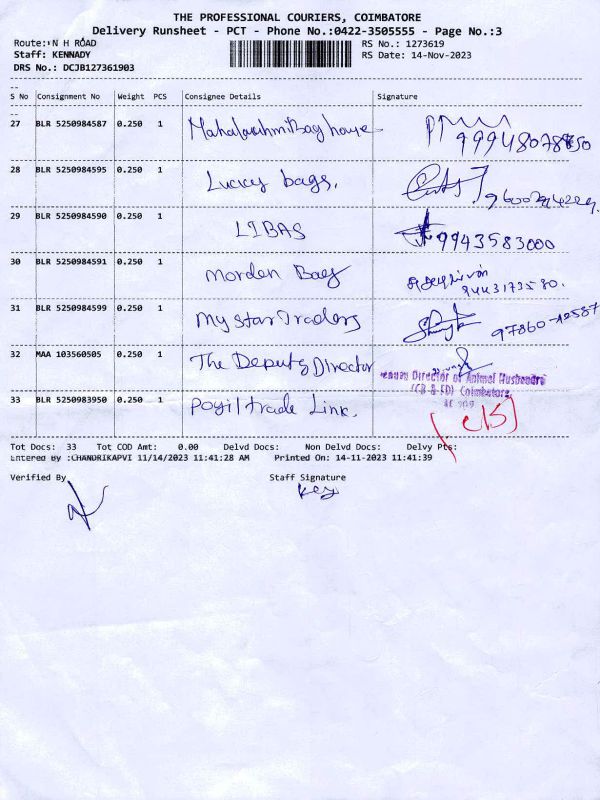 THE PROFESSIONAL COURIERS, COIMBATORE
Delivery Runsheet - PCT - Phone No.:0422-3505555 - Page No.:3
Route: N H ROAD RS No.: 1273619
Staff: KENNADY RS Date: 14-Nov-2023
DRS No.: DCJB127361903
S No Consignment No Weight PCS Consignee Details Signature
27 BLR 5250984587 0.250 1 Mahalakshmi Bag house
28 BLR 5250984595 0.250 1 Lucky bags.
29 BLR 5250984590 0.250 1 LIBAS 9943583000
30 BLR 5250984591 0.250 1 Morden Bag
9443173580.
31 BLR 5250984599 0.250 1 My Star Traders 97860-12587
32 MAA 103560505 0.250 1 The Deputy Director
Director of Animal Husbandry
Coimbatore
33 BLR 5250983950 0.250 1 Poyil trade Link.
Tot Docs: 33 Tot COD Amt: 0.00 Delvd Docs: Non Delvd Docs: Delvy Pts:
Entered By :CHANDRIKAPVI 11/14/2023 11:41:28 AM Printed On: 14-11-2023 11:41:39
Verified By Staff Signature
Key